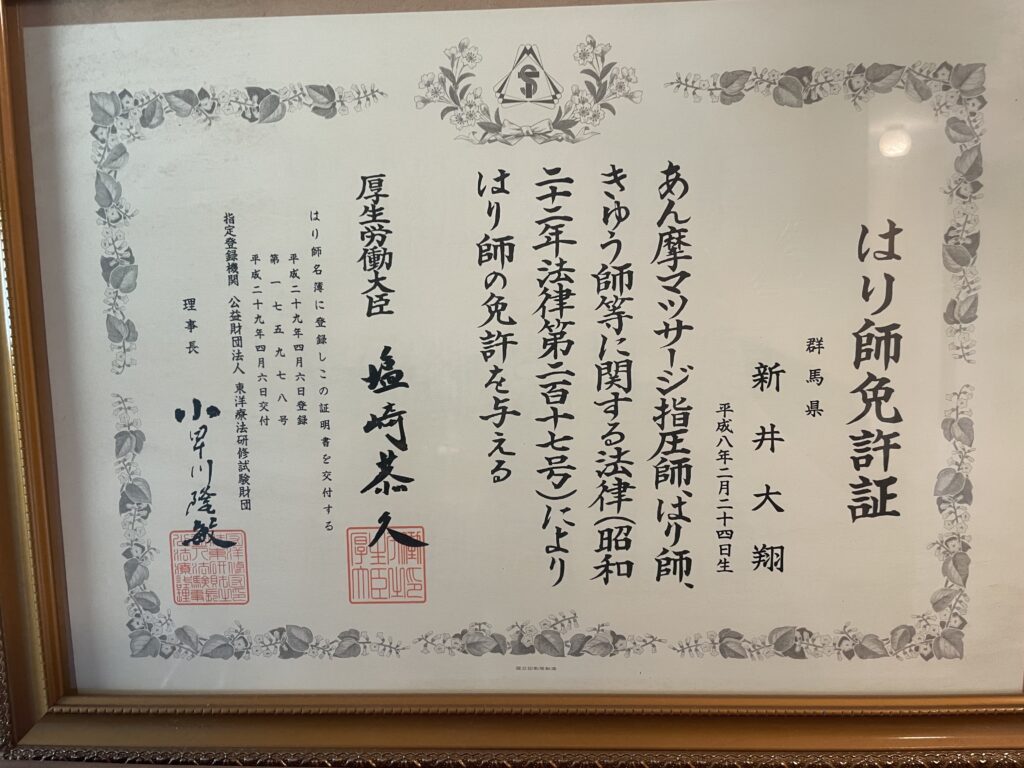 はり師免許証
群馬県
新井大翔
平成八年二月二十四日生
あん摩マツサージ指圧師、はり師、
きゆう師等に関する法律(昭和
二十二年法律第二百十七号)により
はり師の免許を与える
厚生労働大臣 塩崎恭久
はり師名簿に登録しこの証明書を交付する
平成二十九年四月六日登録
第一七五九七八号
平成二十九年四月六日交付
指定登録機関 公益財団法人 東洋療法研修試験財団
理事長 小早川隆敏